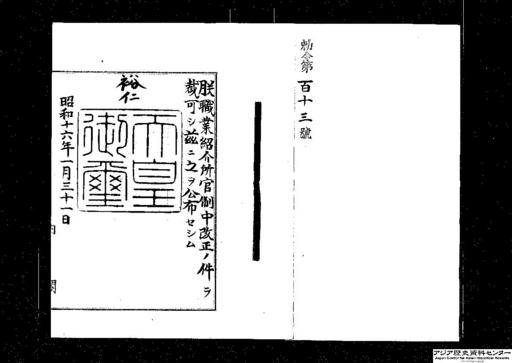 勅令第百十三號
朕職業紹介所官制中改正ノ件ヲ
裁可シ茲ニ之ヲ公布セシム
裕仁
天皇
御璽
昭和十六年一月三十一日
内閣
アジア歴史資料センター
Japan Center for Asian Historical Records